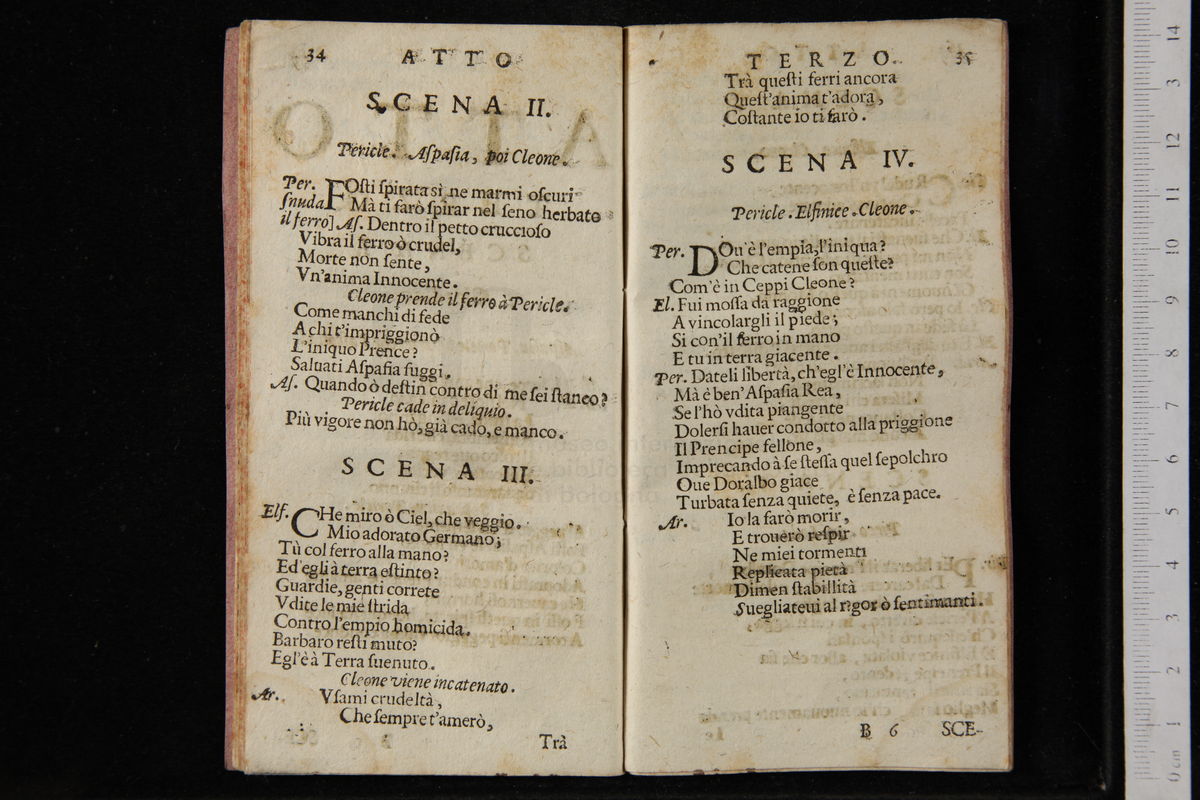 34 ATTO
SCENA II.
Pericle. Aſpaſia, poi Cleone.
Per. FOſti ſpirata sì ne marmi oſcuri
ſnuda Mà ti farò ſpirar nel ſeno herbato
il ferro] Aſ. Dentro il petto cruccioſo
Vibra il ferro ò crudel,
Morte non ſente,
Vn'anima Innocente.
Cleone prende il ferro à Pericle.
Come manchi di fede
A chi t'impriggionò
L'iniquo Prence?
Saluati Aſpaſia fuggi.
Aſ. Quando ò deſtin contro di me ſei ſtanco?
Pericle cade in deliquio.
Più vigore non hò, già cado, e manco.
SCENA III.
Elf. CHe miro ò Ciel, che veggio.
Mio adorato Germano;
Tù col ferro alla mano?
Ed egli à terra eſtinto?
Guardie, genti correte
Vdite le mie ſtrida
Contro l'empio homicida.
Barbaro reſti muto?
Egl'è à Terra ſuenuto.
Cleone viene incatenato.
Ar. Vſami crudeltà,
Che ſempre t'amerò,
Trà
TERZO. 35
Trà queſti ferri ancora
Queſt'anima t'adora,
Coſtante io ti farò.
SCENA IV.
Pericle. Elfinice. Cleone.
Per. DOu'è l'empia, l'iniqua?
Che catene ſon queſte?
Com'è in Ceppi Cleone?
El. Fui moſſa da raggione
A vincolargli il piede;
Si con'il ferro in mano
E tu in terra giacente.
Per. Dateli libertà, ch'egl'è Innocente,
Mà è ben'Aſpaſia Rea,
Se l'hò vdita piangente
Dolerſi hauer condotto alla priggione
Il Prencipe fellone,
Imprecando à ſe ſteſſa quel ſepolchro
Oue Doralbo giace
Turbata ſenza quiete, è ſenza pace.
Ar. Io la farò morir,
E trouerò reſpir
Ne miei tormenti
Replicata pietà
Dimen ſtabillità
Suegliateui al rigor ò ſentimanti.
B 6 SCE-